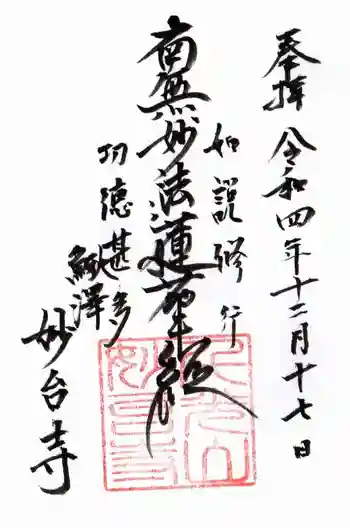 奉拝 令和四年十二月十七日
如説修行
南無妙法蓮華経
功徳甚多
鰍澤
妙台寺